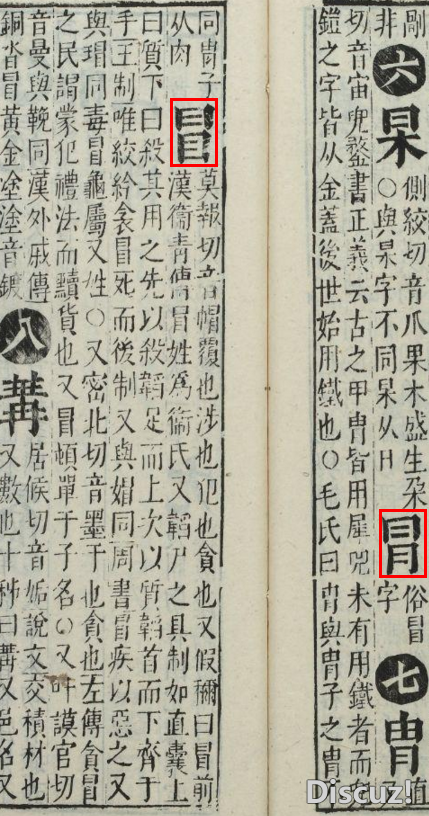 剛
非
六
杲
側絞切音爪果木盛生朵
○與杲字不同杲从日
冐
俗冒
字
七
冑
直
切音宙兜鍪書正義云古之甲冑皆用犀兕未有用鐵者而
鎧之字皆从金蓋後世始用鐵也○毛氏曰冑與冑子之冑
同冑子
从肉
冒
莫報切音帽覆也涉也犯也貪也又假稱曰冒前
漢衞青傳冒姓為衞氏又韜尸之具制如直囊上
曰質下曰殺其用之先以殺韜足而上次以質韜首而下齊于
手王制唯絞紟衾冒死而後制又與媢同周書冒疾以惡之又
與瑁同毒冒龜屬又姓○又密北切音墨干也貪也左傳貪冒
之民謂蒙犯禮法而黷貨也又冒頓單于子名○又叶謨官切
音曼與鞔同漢外戚傳
銅沓冒黃金塗塗音鍍
八
冓
居候切音姤說文交積材也
又數也十秭曰冓又邑名又
Discuz!